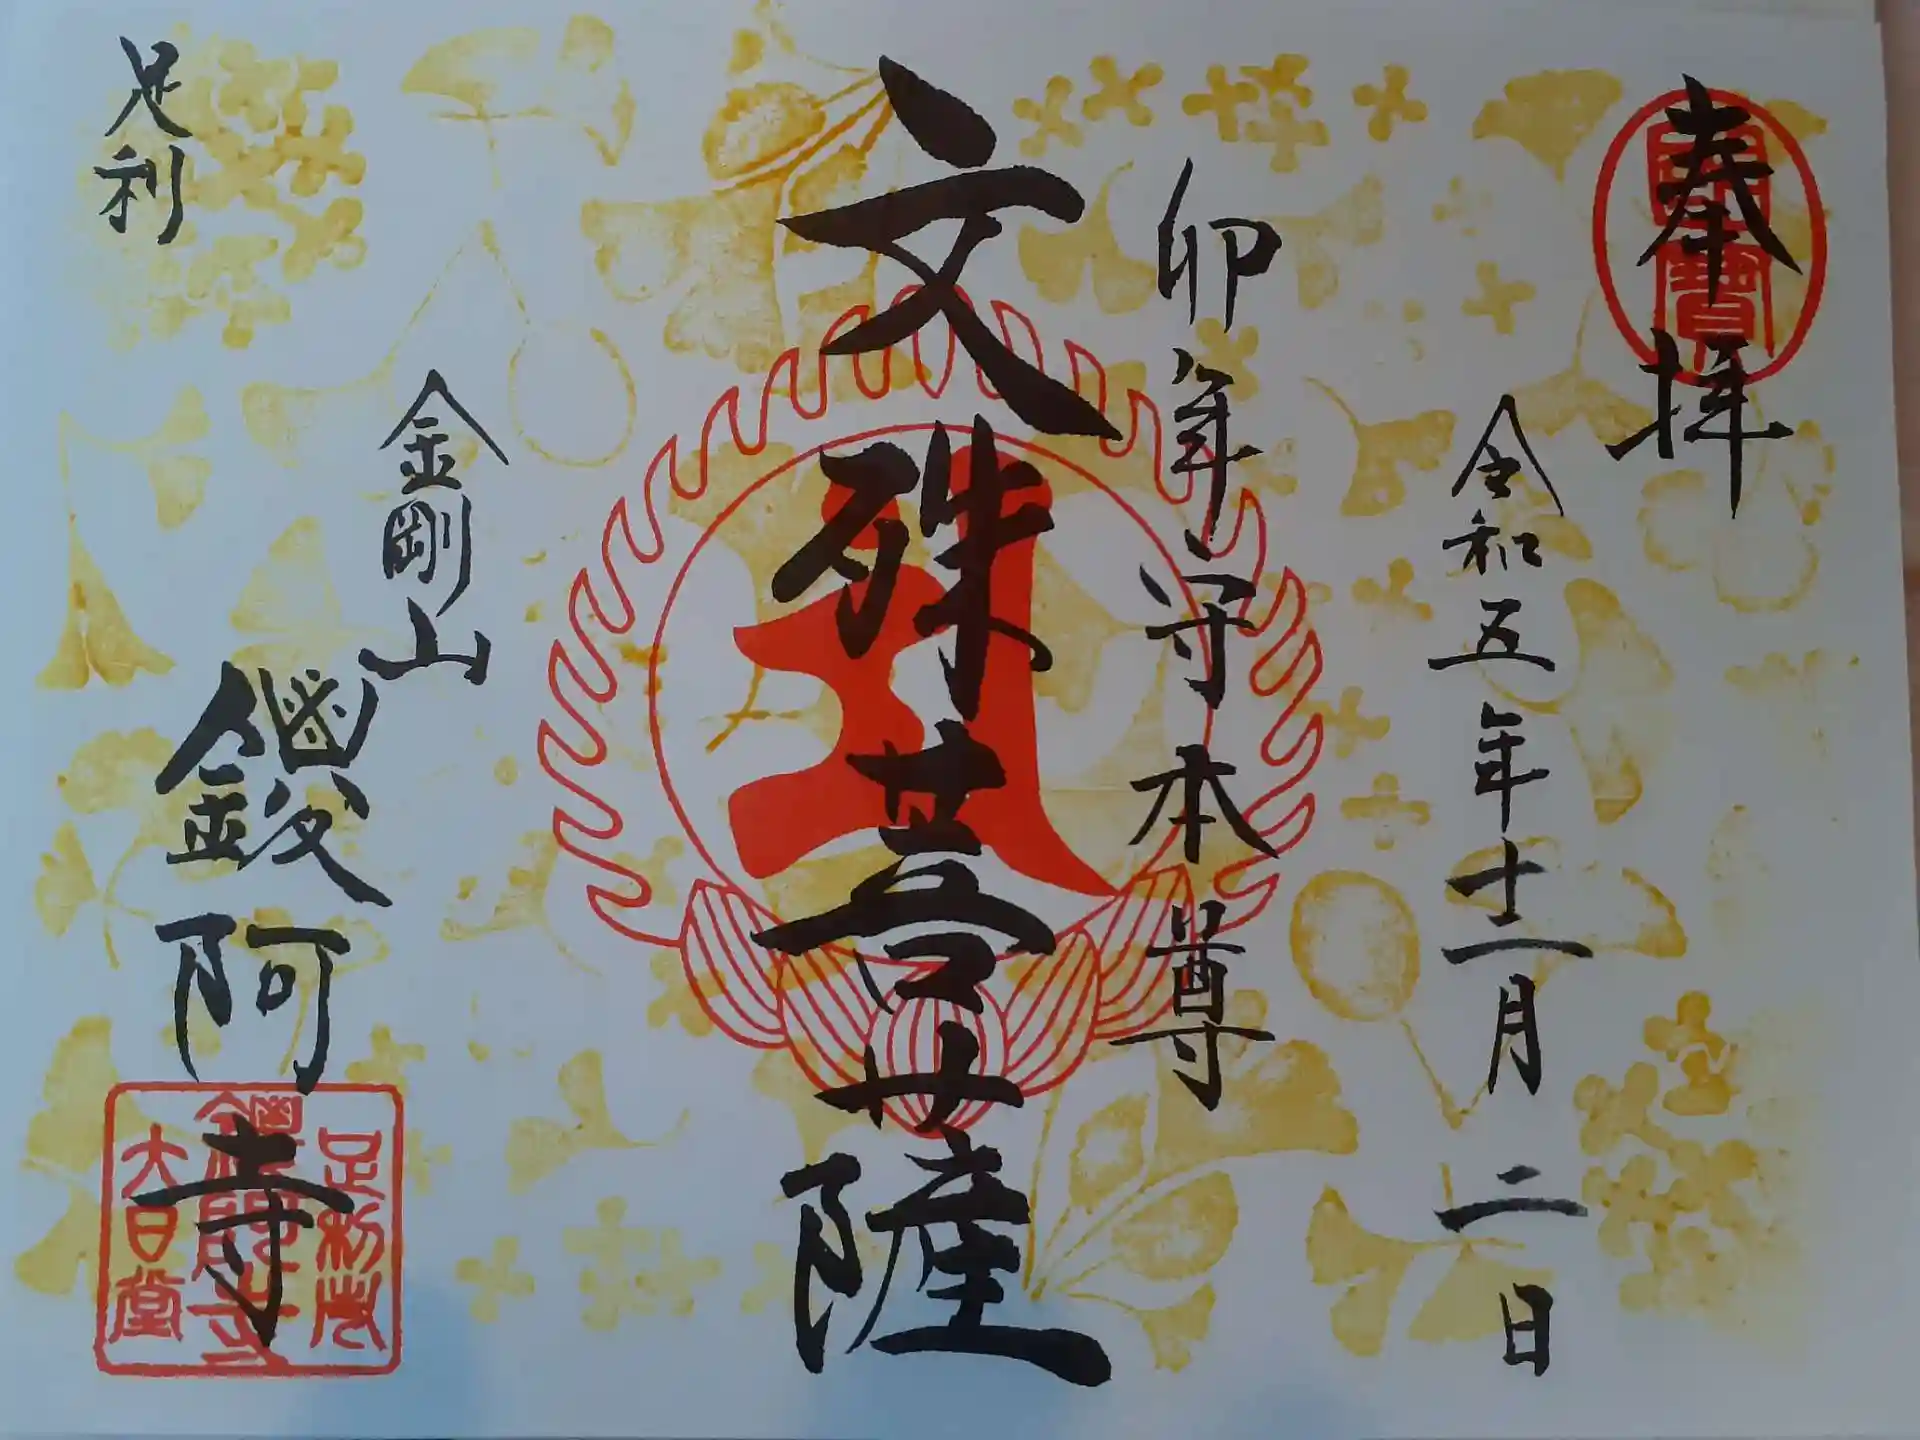 奉拝
令和五年十二月二日
卯年守本尊
文殊菩薩
金剛山
足利
鑁阿寺
大日堂